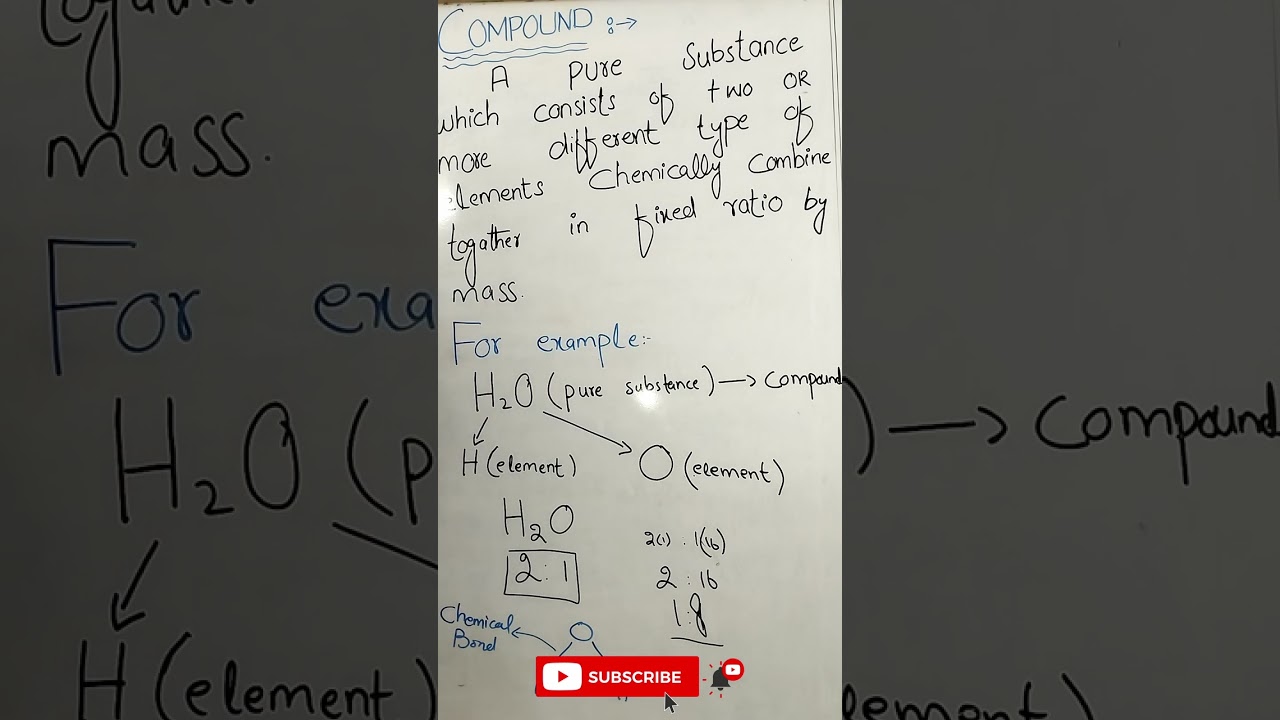 COMPOUND :->
A pure Substance
which consists of two OR
more different type of
elements Chemically Combine
togather in fixed ratio by
mass.
For example:-
H₂O (pure substance) → Compound
H (element) O (element)
H₂O
2(1) : 1(16)
2 : 1
2 : 16
1:8
Chemical
Bond
O
SUBSCRIBE
mass.
For exa
H₂O (p
) → Compound
H (element)
element)